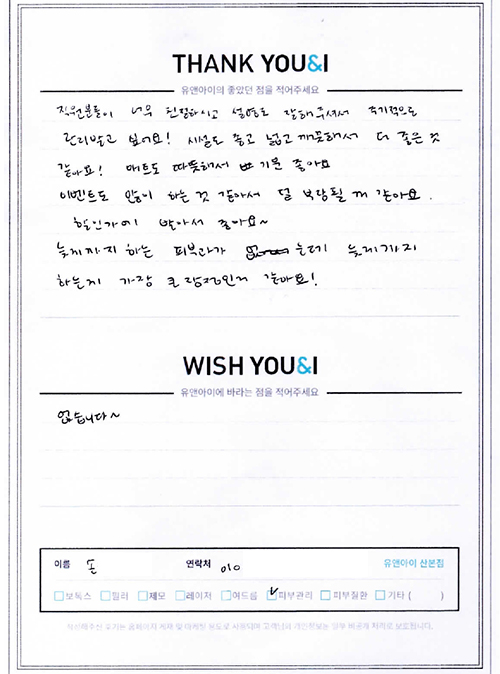 THANK YOU&I
유앤아이의 좋았던 점을 적어주세요
직원분들이 너무 친절하시고 설명도 잘해주셔서 주기적으로
관리받고 싶어요! 시설도 좋고 넓고 깨끗해서 더 좋은 것
같아요! 매트도 따뜻해서 기분 좋아요
이벤트도 많이 하는 것 같아서 덜 부담될 꺼 같아요.
할인가에 받아서 좋아요~
늦게까지 하는 피부과가 없는데 늦게까지
하는게 가장 큰 장점인거 같아요!
WISH YOU&I
유앤아이에 바라는 점을 적어주세요
없습니다~
이름 손 연락처 010 유앤아이 산본점
보톡스 필러 제모 레이저 여드름 피부관리 피부질환 기타 ( )
작성해주신 후기는 홈페이지 게재 및 마케팅 용도로 사용되며 고객님의 개인정보는 정부 비공개 처리로 보호됩니다.